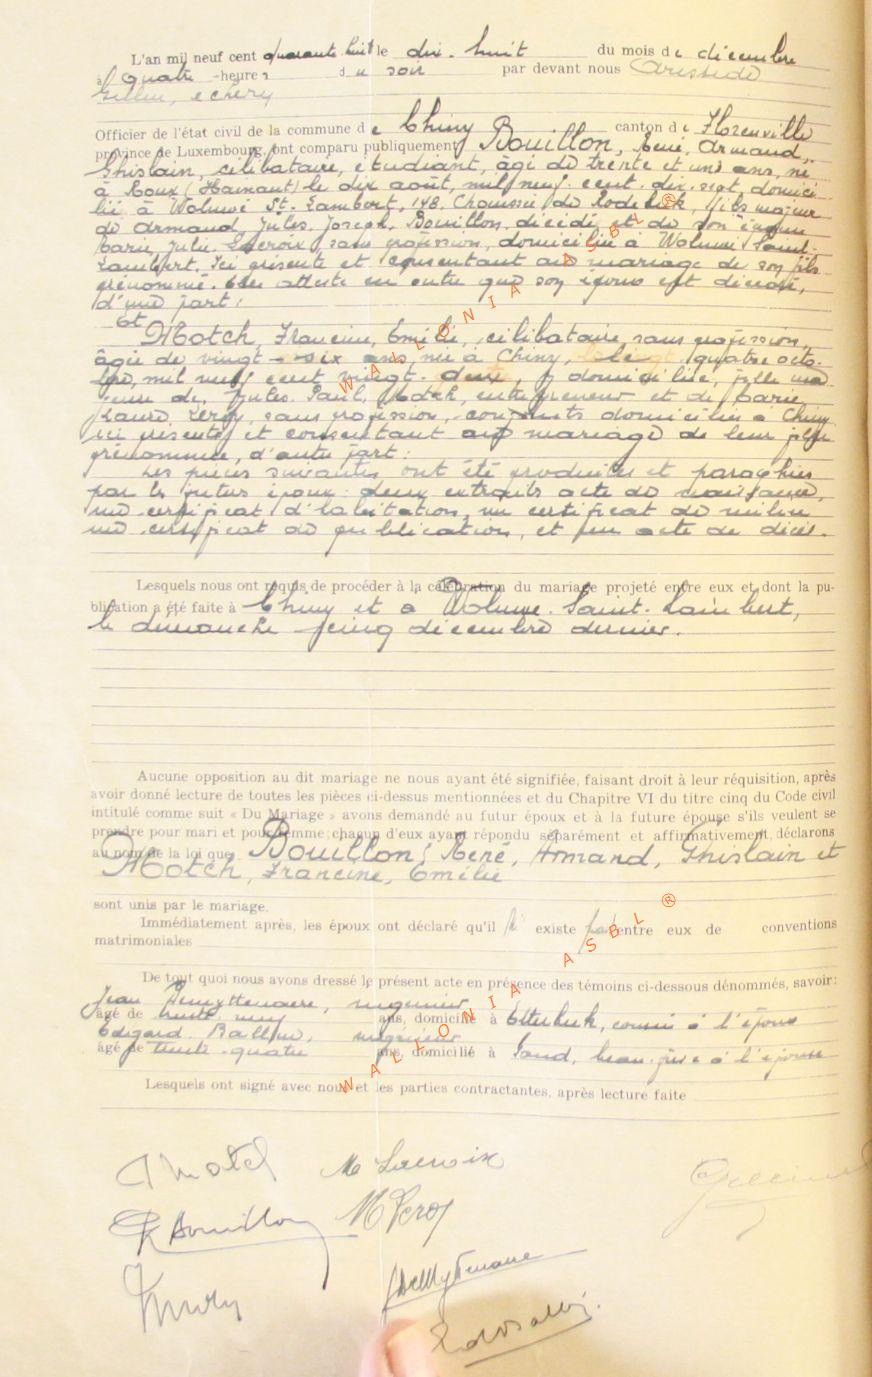 L'an mil neuf cent quarante-huit le dix-huit du mois de décembre
à quatre heures du soir par devant nous Aristide
Gillin, echevin
Officier de l'état civil de la commune de Chiny canton de Florenville
province de Luxembourg, ont comparu publiquement Bouillon, René, Armand,
Ghislain, célibataire, étudiant, âgé de trente et un ans, né
à Roux (Hainaut) le dix août, mil neuf cent dix-sept, domici-
lié à Woluwé St. Lambert, 148, Chaussée de Roodebeek, fils majeur
de Armand, Jules, Joseph, Bouillon, décédé et de son épouse
Marie, Julie Lacroix, sans profession, domiciliée à Woluwé Saint-
Lambert. Ici présente et consentant au mariage de son fils
prénommé. Elle atteste en outre que son époux est décédé,
d'une part;
Et
Motch, Francine, Emilie, célibataire, sans profession,
âgée de vingt-six ans, née à Chiny, le quatre octo-
bre, mil neuf cent vingt-deux, y domiciliée, fille ma-
jeure de, Jules, Paul, Motch, entrepreneur et de Marie
Laure Leroy, sans profession, conjoints domiciliés à Chiny
ici présents et consentant au mariage de leur fille
prénommée, d'autre part:
Les pièces suivantes ont été produites et paraphées
par les futurs époux: deux extraits acte de naissance,
un certificat d'habitation, un certificat de milice
un certificat de publication, et un acte de décès.
Lesquels nous ont requis de procéder à la célébration du mariage projeté entre eux et dont la pu-
blication a été faite à Chiny et à Woluwe-Saint-Lambert,
le dimanche cinq décembre dernier.
Aucune opposition au dit mariage ne nous ayant été signifiée, faisant droit à leur réquisition, après
avoir donné lecture de toutes les pièces ci-dessus mentionnées et du Chapitre VI du titre cinq du Code civil
intitulé comme suit « Du Mariage » avons demandé au futur époux et à la future épouse s'ils veulent se
prendre pour mari et pour femme; chacun d'eux ayant répondu séparément et affirmativement, déclarons
au nom de la loi que Bouillon, René, Armand, Ghislain et
Motch, Francine, Emilie
sont unis par le mariage.
Immédiatement après, les époux ont déclaré qu'il n' existe pas entre eux de conventions
matrimoniales
De tout quoi nous avons dressé le présent acte en présence des témoins ci-dessous dénommés, savoir:
Jean Demyttenaere, ingénieur
âgé de trente neuf ans, domicilié à Etterbeek, cousin à l'époux
Edgard Ballini, ingénieur
âgé de trente-quatre ans, domicilié à Gand, beau-frère à l'épouse
Lesquels ont signé avec nous et les parties contractantes, après lecture faite
Motch M Lacroix
R Bouillon M Leroy
WALLONIA ASBL ®
WALLONIA ASBL ®